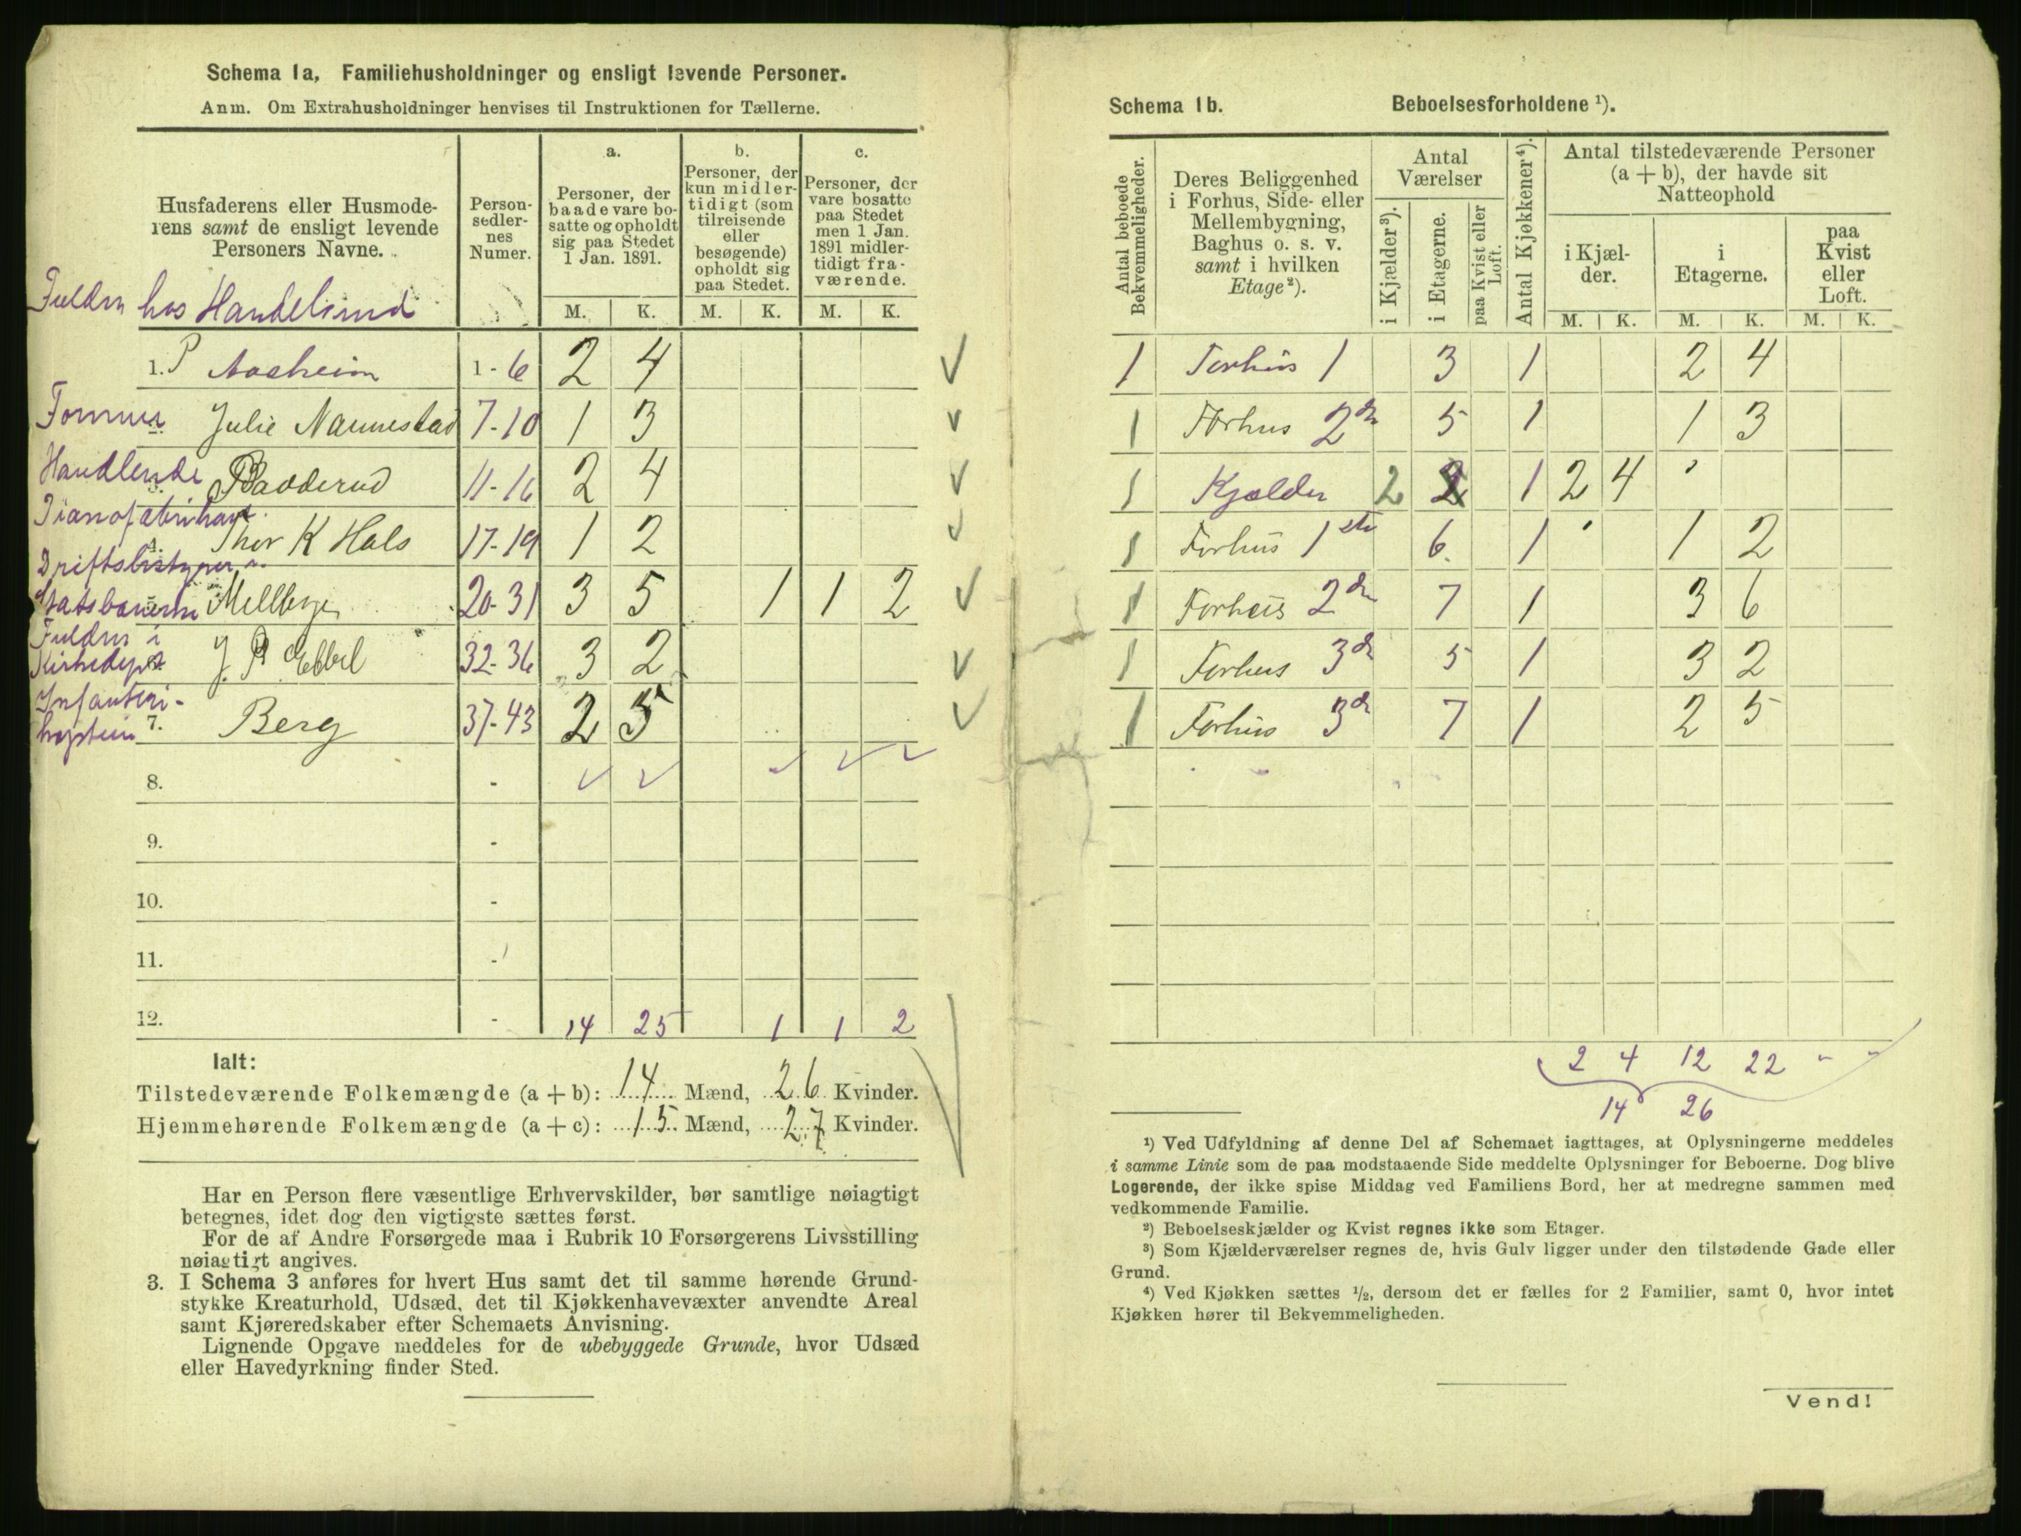 Schema 1a, Familiehusholdninger og ensligt levende Personer.
Anm. Om Extrahusholdninger henvises til Instruktionen for Tællerne.
Husfaderens eller Husmode-
rens samt de ensligt levende
Personers Navne.
Person-
sedler-
nes
Numer.
a.
Personer, der
baade vare bo-
satte og opholdt
sig paa Stedet
1 Jan. 1891.
b.
Personer, der
kun midler-
tidigt (som
tilreisende
eller
besøgende)
opholdt sig
paa Stedet.
c.
Personer, der
vare bosatte
paa Stedet
men 1 Jan.
1891 midler-
tidigt fra-
værende.
M. K. M. K. M. K.
hos
1. P Aasheim 1-6 2 4
Julie Nannestad 7-10 1 3
Handlende
Badderud 11-16 2 4
Pianofabrikant
Thor K Hals 17-19 1 2
20-31 3 5 1 1 2
i
J. P. Ebbel 32-36 3 2
Infanteri-
7. Berg 37-43 2 5
8. -
9. -
10. -
11. -
12. - 14 25 1 1 2
Ialt:
Tilstedeværende Folkemængde (a + b): 14 Mænd, 26 Kvinder.
Hjemmehørende Folkemængde (a + c): 15 Mænd, 27 Kvinder.
Har en Person flere væsentlige Erhvervskilder, bør samtlige nøiagtigt
betegnes, idet dog den vigtigste sættes først.
For de af Andre Forsørgede maa i Rubrik 10 Forsørgerens Livsstilling
nøiagtigt angives.
3. I Schema 3 anføres for hvert Hus samt det til samme hørende Grund-
stykke Kreaturhold, Udsæd, det til Kjøkkenhavevæxter anvendte Areal
samt Kjøreredskaber efter Schemaets Anvisning.
Lignende Opgave meddeles for de ubebyggede Grunde, hvor Udsæd
eller Havedyrkning finder Sted.
Schema 1b. Beboelsesforholdene ¹).
Antal beboede
Bekvemmeligheder.
Deres Beliggenhed
i Forhus, Side- eller
Mellembygning,
Baghus o. s. v.
samt i hvilken
Etage²).
Antal
Værelser
i Kjælder³).
i Etagerne.
paa Kvist eller
Loft.
Antal Kjøkkener⁴).
Antal tilstedeværende Personer
(a + b), der havde sit
Natteophold
i Kjæl-
der.
i
Etagerne.
paa
Kvist
eller
Loft.
M. K. M. K. M. K.
1 Forhus 1 3 1 2 4
1 Forhus 2den 5 1 1 3
1 Kjælder 2 1 2 4
1 Forhus 1ste 6 1 1 2
1 Forhus 2den 7 1 3 6
1 Forhus 3d 5 1 3 2
1 Forhus 3d 7 1 2 5
2 4 12 22 - -
14 26
¹) Ved Udfyldning af denne Del af Schemaet iagttages, at Oplysningerne meddeles
i samme Linie som de paa modstaaende Side meddelte Oplysninger for Beboerne. Dog blive
Logerende, der ikke spise Middag ved Familiens Bord, her at medregne sammen med
vedkommende Familie.
²) Beboelseskjælder og Kvist regnes ikke som Etager.
³) Som Kjælderværelser regnes de, hvis Gulv ligger under den tilstødende Gade eller
Grund.
⁴) Ved Kjøkken sættes ½, dersom det er fælles for 2 Familier, samt 0, hvor intet
Kjøkken hører til Bekvemmeligheden.
Vend!